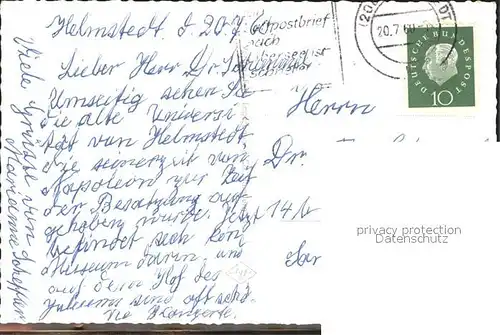 Helmstedt, d. 20.7.60
Lieber Herr Dr.
Umseitig sehen Sie
die alte Universi
tät von Helmstedt,
die seinerzeit von
Napoleon zur Zeit
der Besatzung auf
gehoben wurde. Jetzt
befindet sich ein
Museum darin, und
auf dem Hof des
Juleums sind oft schö
ne Konzerte.
Viele Grüsse von
Luftpostbrief
nach
Übersee ist
(20
DT
20.7.60
DEUTSCHE BUNDESPOST
10
Herrn
Dr.
14b
privacy protection
Datenschutz